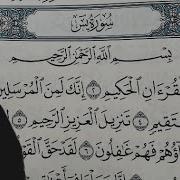 سُورَةُ يسٓ
بِسْمِ ٱللَّهِ ٱلرَّحْمَٰنِ ٱلرَّحِيمِ
لْقُرْءَانِ ٱلْحَكِيمِ ٢ إِنَّكَ لَمِنَ ٱلْمُرْسَلِينَ
سْتَقِيمٍ ٤ تَنزِيلَ ٱلْعَزِيزِ ٱلرَّحِيمِ ٥
ؤُهُمْ فَهُمْ غَٰفِلُونَ ٦ لَقَدْ حَقَّ ٱلْقَوْ